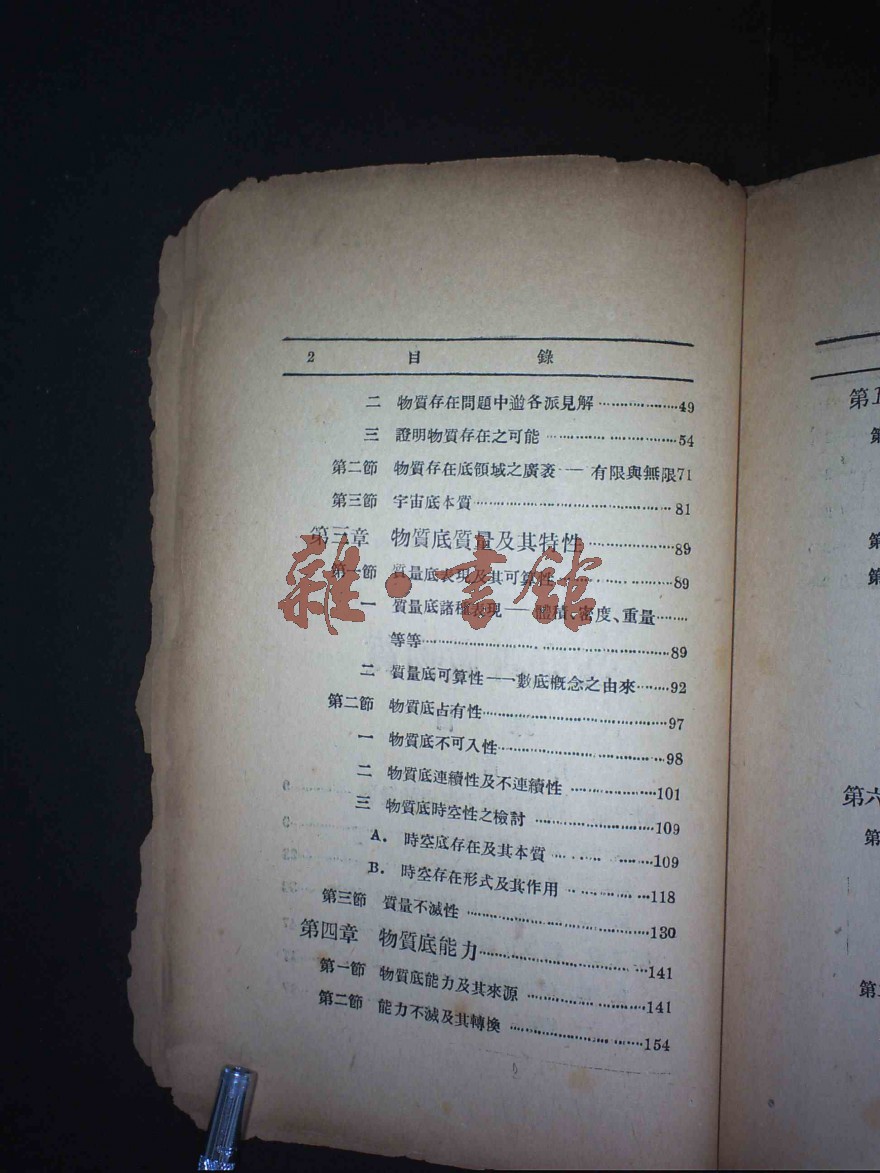 2 目 錄
二 物質存在問題中遒各派見解………………49
三 證明物質存在之可能………………54
第二節 物質存在底領域之廣袤——有限與無限71
第三節 宇宙底本質………………81
第三章 物質底質量及其特性………………89
第一節 質量底表現及其可算性………………89
一 質量底諸種表現——體積、密度、重量……
等等………………89
二 質量底可算性——數底概念之由來……92
第二節 物質底占有性………………97
一 物質底不可入性………………98
二 物質底連續性及不連續性………………101
三 物質底時空性之檢討………………109
A. 時空底存在及其本質………………109
B. 時空存在形式及其作用………………118
第三節 質量不滅性………………130
第四章 物質底能力………………141
第一節 物質底能力及其來源………………141
第二節 能力不滅及其轉換………………154
雜·書館
第
第
第
第
第六
第
第